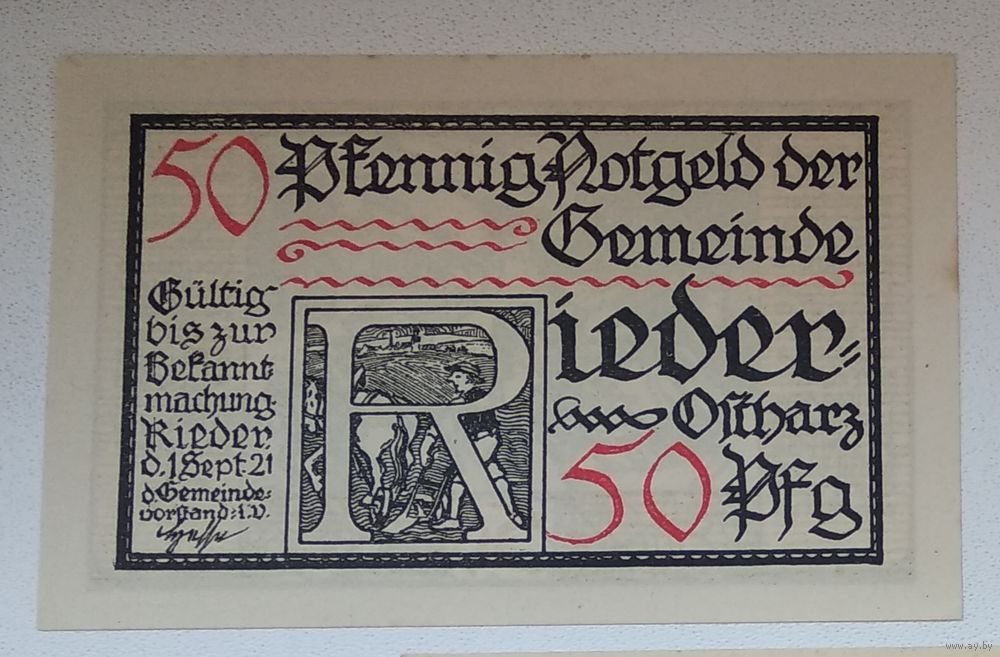 50 Pfennig Notgeld der
Gemeinde
Rieder-
Ostharz
50 Pfg
Gültig
bis zur
Bekannt-
machung.
Rieder,
d. 1 Sept. 21
d. Gemeinde-
vorstand: i. V.
www.ay.by